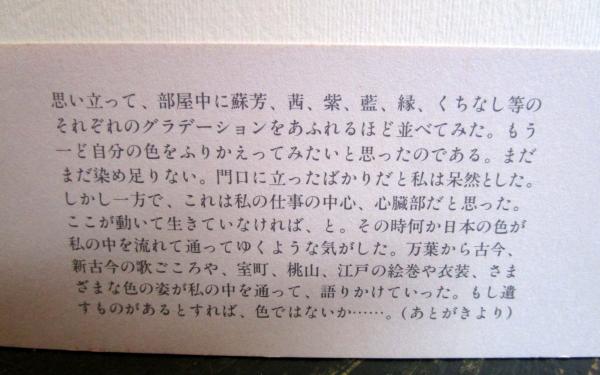 思い立って、部屋中に蘇芳、茜、紫、藍、縁、くちなし等の
それぞれのグラデーションをあふれるほど並べてみた。もう
一ど自分の色をふりかえってみたいと思ったのである。まだ
まだ染め足りない。門口に立ったばかりだと私は呆然とした。
しかし一方で、これは私の仕事の中心、心臓部だと思った。
ここが動いて生きていなければ、と。その時何か日本の色が
私の中を流れて通ってゆくような気がした。万葉から古今、
新古今の歌ごころや、室町、桃山、江戸の絵巻や衣装、さま
ざまな色の姿が私の中を通って、語りかけていった。もし遺
すものがあるとすれば、色ではないか……。(あとがきより)